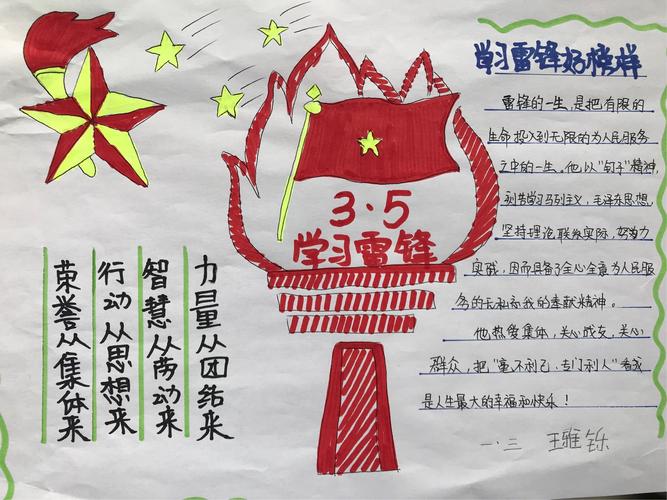 学习雷锋好榜样
3·5
学习雷锋
力量从团结来
智慧从劳动来
行动从思想来
荣誉从集体来
雷锋的一生,是把有限的
生命投入到无限的为人民服务
之中的一生。他以"钉子"精神,
刻苦学习马列主义,毛泽东思想,
坚持理论联系实际,努力
实践,因而具备了全心全意为人民服
务的无私忘我的奉献精神。
他热爱集体,关心战友,关心
群众,把"毫不利己、专门利人"看成
是人生最大的幸福和快乐!
一.三 王雅铄